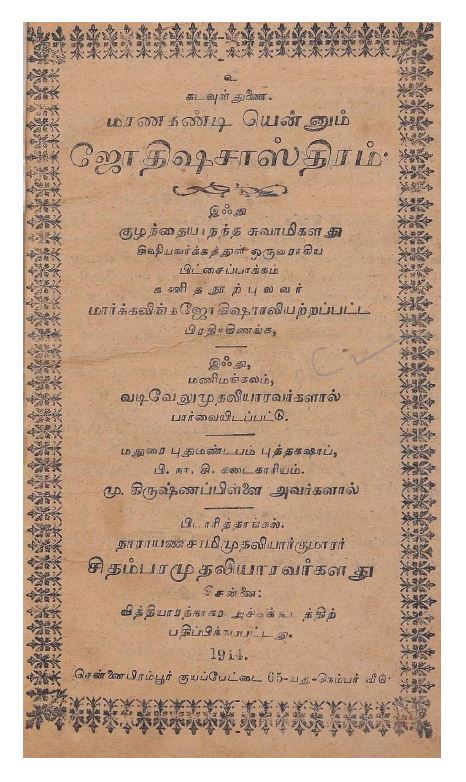 உ
கடவுள் துணை.
மரணகண்டி யென்னும்
ஜோதிஷசாஸ்திரம்.
இஃது
குழந்தையானந்த சுவாமிகளது
சிஷியவர்க்கத்துள் ஒருவராகிய
பிட்சைப்பாக்கம்
கணிதநூற்புலவர்
மார்க்கலிங்கஜோதிஷராலியற்றப்பட்ட
பிரதிக்கிணங்க,
இஃது,
மணிமங்கலம்,
வடிவேலுமுதலியாரவர்களால்
பார்வையிடப்பட்டு.
மதுரை புதுமண்டபம் புத்தகஷாப்,
பி. நா. சி. கடைகாரியம்.
மு. கிருஷ்ணப்பிள்ளை அவர்களால்
பிடாரித்தாங்கல்.
நாராயணசாமிமுதலியார்குமாரர்
சிதம்பரமுதலியாரவர்களது
சென்னை:
வித்தியாரத்நாகர அச்சுக்கூடத்திற்
பதிப்பிக்கப்பட்டது.
1914.
சென்னைபிரம்பூர் குயப்பேட்டை 65-வது-நெம்பர் வீடு